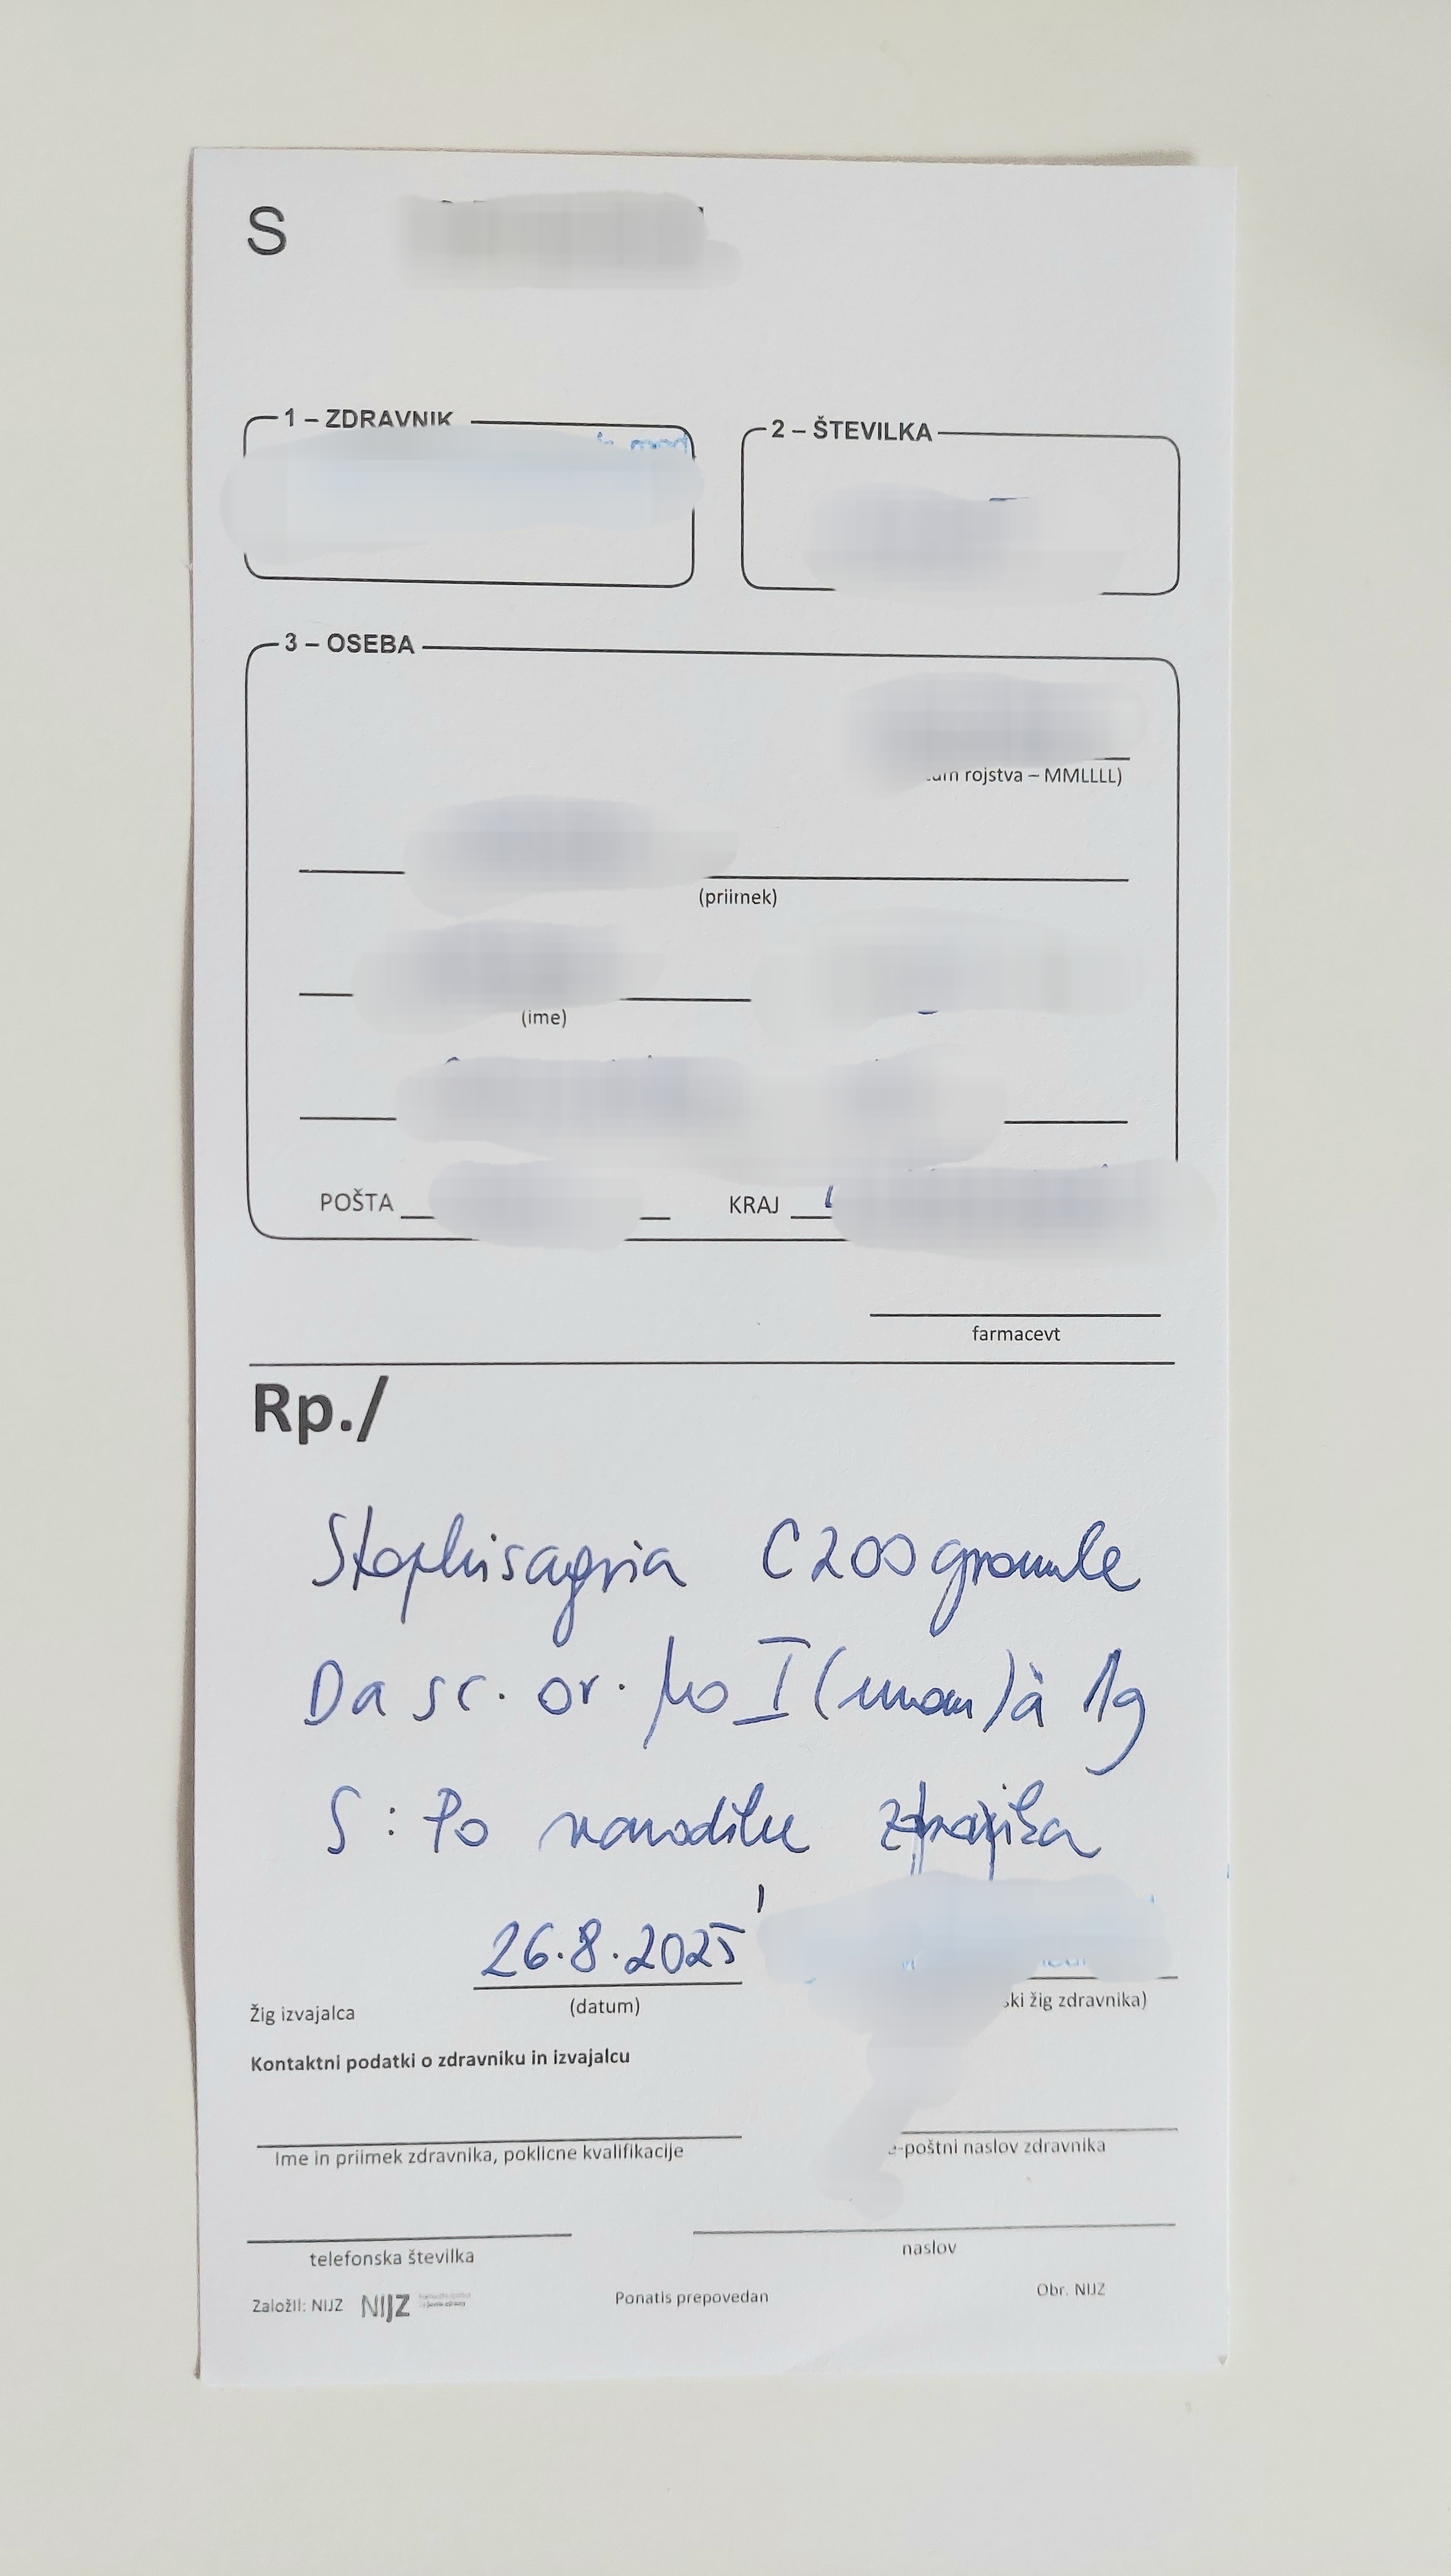 S
1 – ZDRAVNIK
2 – ŠTEVILKA
3 – OSEBA
rojstva – MMLLLL)
(priimek)
(ime)
POŠTA KRAJ
farmacevt
Rp./
Staphisagria C200 granule
Da sc. or. No I (unam) à 1g
S: Po navodilu zdravnika
26.8.2025
Žig izvajalca (datum) žig zdravnika)
Kontaktni podatki o zdravniku in izvajalcu
Ime in priimek zdravnika, poklicne kvalifikacije e-poštni naslov zdravnika
telefonska številka naslov
Založil: NIJZ NIJZ Ponatis prepovedan Obr. NIJZ